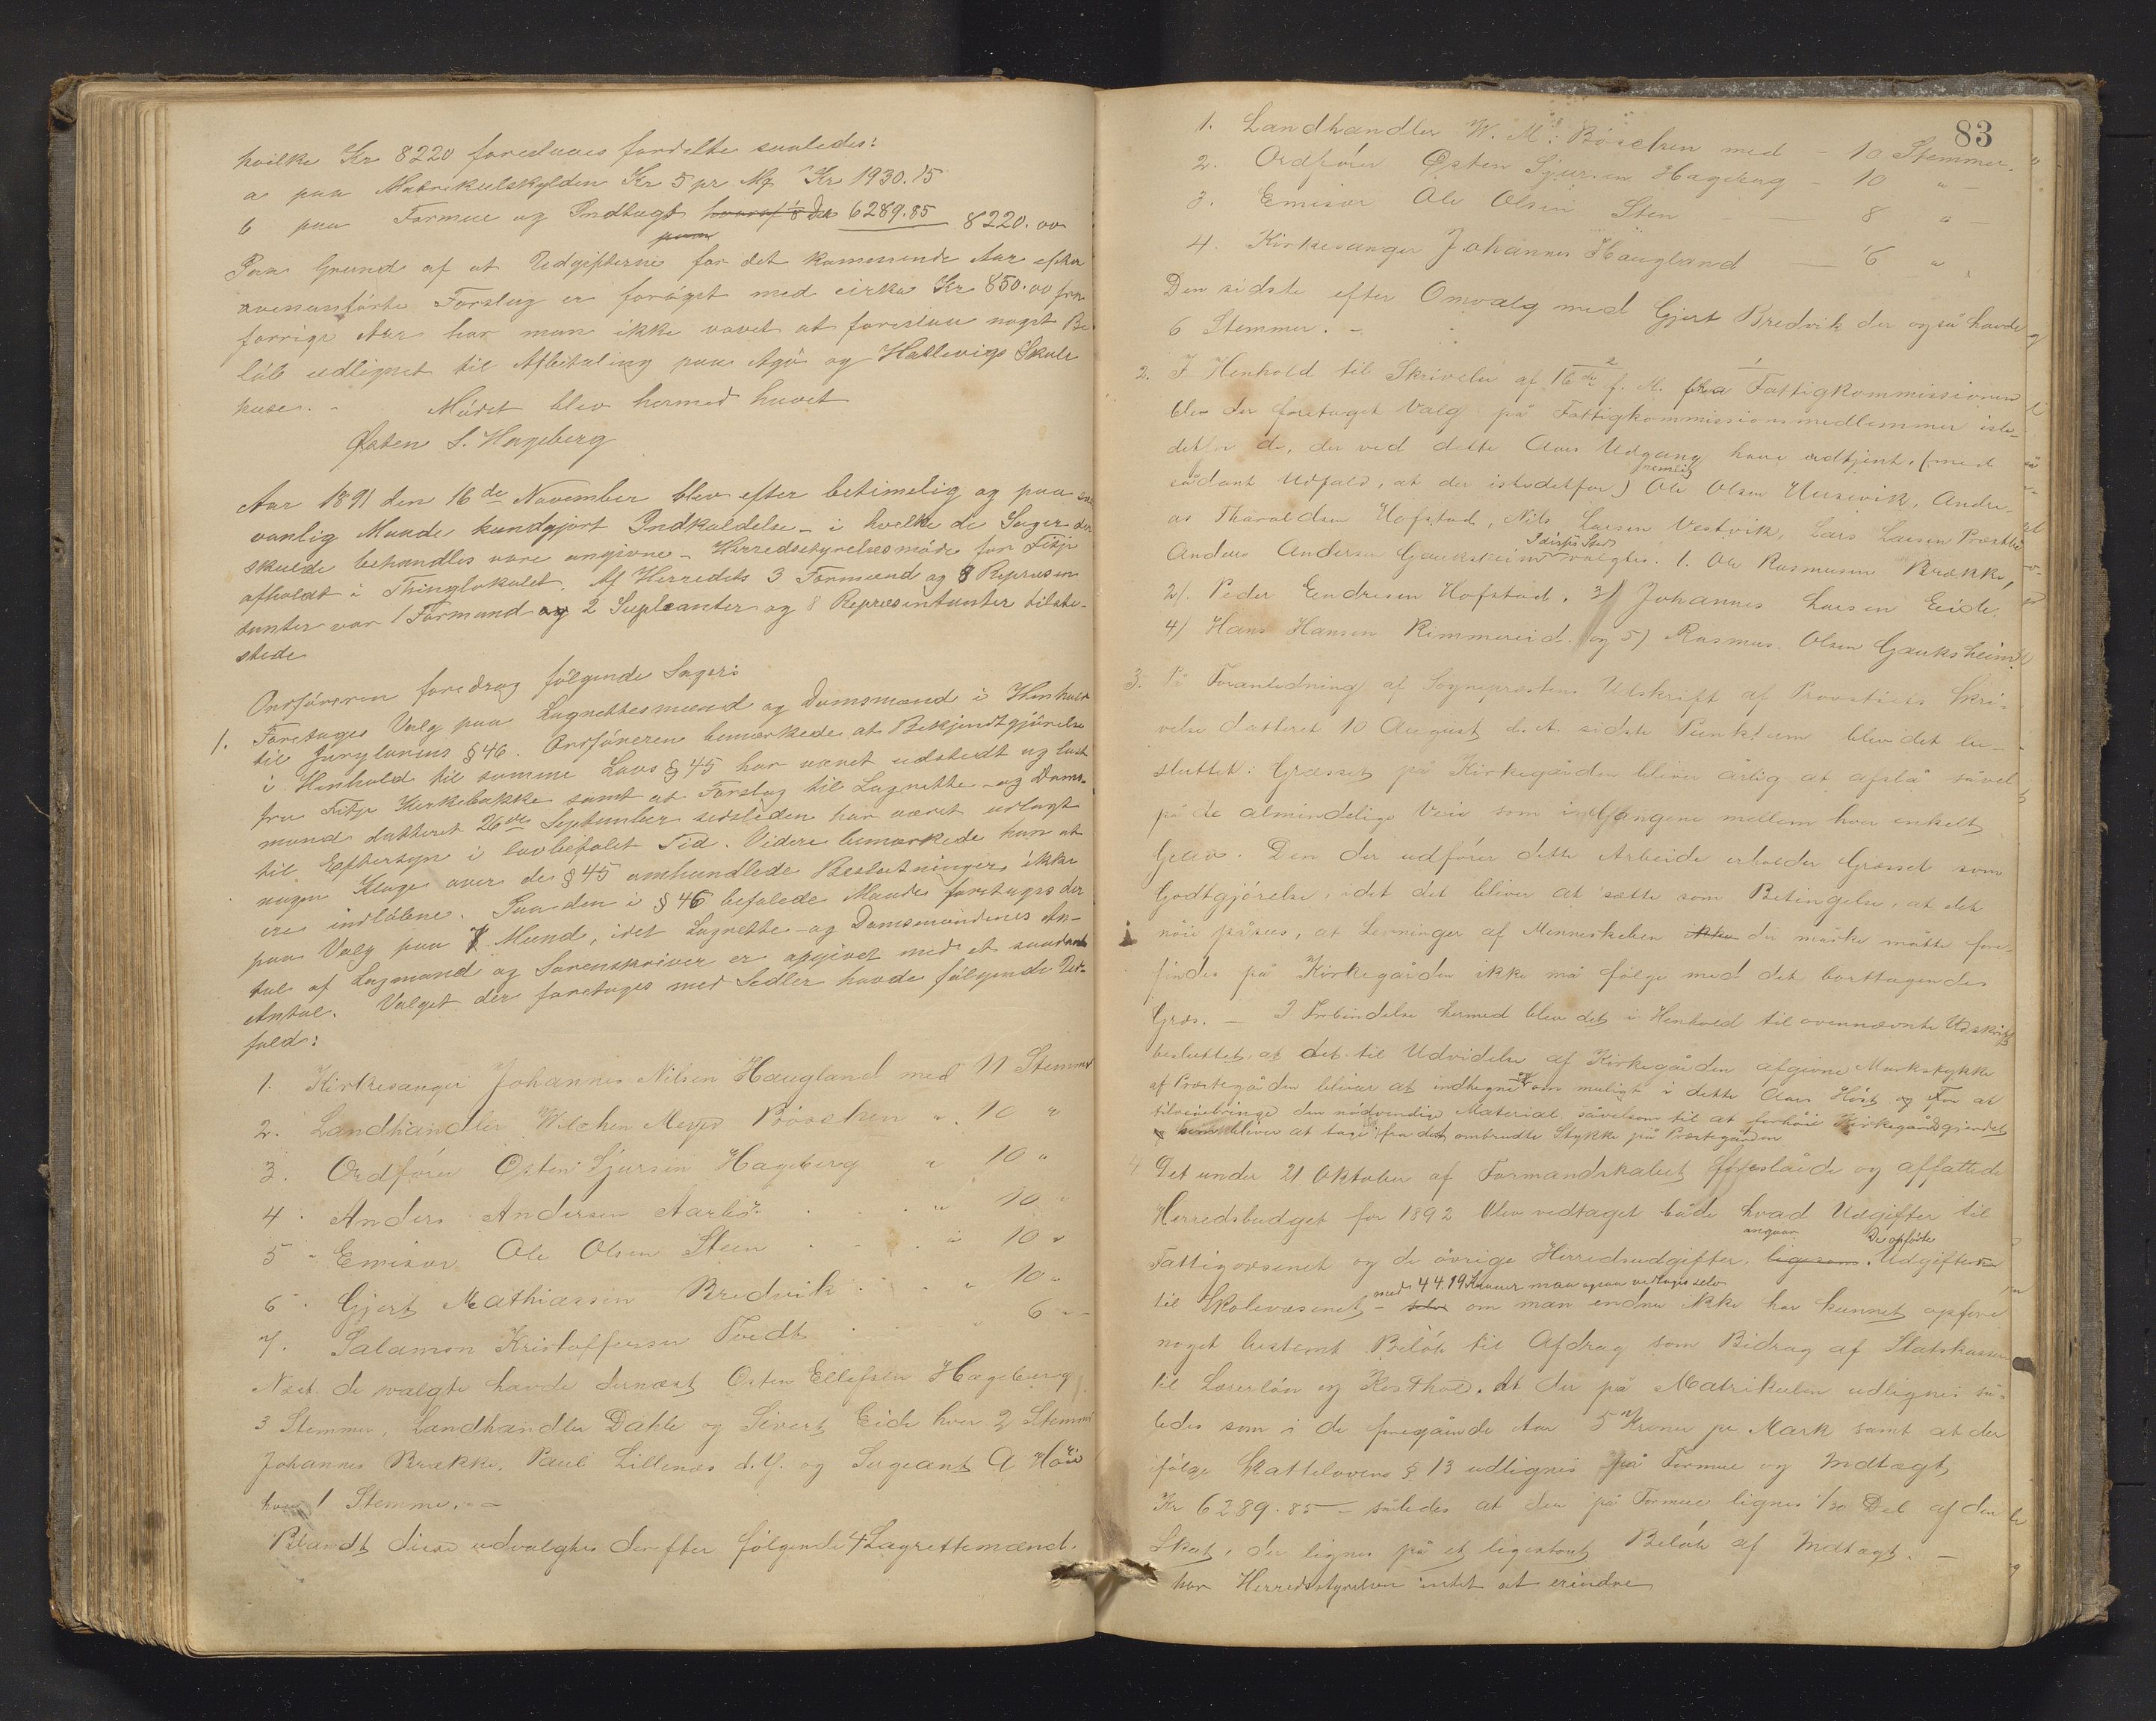 hvilke Kr 8220 foreslaaes fordelte saaledes:
a paa Matrikulskylden Kr 5 pr Mg Kr 1930.15
b paa Formue og Indtægt hvoraf 6289.85 8220.00
Paa Grund af at Udgifterne for det kommende Aar efter
ovenanførte Forslag er forøget med cirka Kr 850.00 fra
forrige Aar har man ikke vovet at foreslaa noget Be
løb udlignet til Afbetaling paa Agø og Hatlevigs Skule
huse. - Mødet blev hermed hævet
Østen S. Hageberg
Aar 1891 den 16de November blev efter betimelig og paa sæd
vanlig Maade kundgjort Indkaldelse - i hvilke de Sager der
skulde behandles vare angivne - Herredsstyrelsesmøde for Fitje
afholdt i Thinglokalet. Af Herredets 3 Formænd og 8 Repræsen
tanter var 1 Formand og 2 Supleanter og 8 Repræsentanter tilste
stede
Ordføreren foredrog følgende Sager:
1. Foretages Valg paa Lagrettesmænd og Domsmænd i Henhold
til Jurylovens § 46. Ordføreren bemærkede at Bekjendtgjørelse
i Henhold til samme Lovs § 45 har været udstedt og læst
fra Fitje Kirkebakke samt at Forslag til Lagrette- og Doms-
mænd datteret 26de September sidstleden har været udlagt
til Eftersyn i lovbefalet Tid. Videre bemærkede han at
nogen Klage over de § 45 omhandlede Beslutninger ikke
ere indløbne. Paa den i § 46 befalede Maade foretages der
paa Valg paa 7 Mænd, idet Lagrette- og Domsmændenes An-
tal af Lagmand og Sorenskriver er opgivet med et saadant
Antal. Valget der foretages med Sedler havde følgende Ud-
fald:
1. Kirkesanger Johannes Nilsen Haugland med 11 Stemmer
2. Landhandler Wilchen Meyer Böschen " 10 "
3. Ordfører Østen Sjursen Hageberg " 10 "
4. Anders Andersen Aarbø " 10 "
5. Emisær Ole Olsen Steen " 10 "
6. Gjert Mathiassen Bredvik " 10 "
7. Salamon Kristoffersen Tvedt 6 "
Næst de valgte havde dernæst Østen Ellefsen Hageberg
3 Stemmer, Landhandler Dahle og Sivert Eide hver 2 Stemmer
Johannes Brække, Paul Lillenes d.y. og Sergeant A Høie
hver 1 Stemme. -
Blandt disse udvalgtes derefter følgende 4 Lagrettemænd.
83
1. Landhandler W. M. Böschen med - 10 Stemmer.
2. Ordfører Østen Sjursen Hageberg - 10 "
3. Emisær Ole Olsen Sten - 8 "
4. Kirkesanger Johannes Haugland - 6 "
Den sidste efter Omvalg med Gjert Bredvik der også havde
6 Stemmer. -
2. I Henhold til Skrivelse af 16de f. M. fra Fattigkommissionen
blev der foretaget Valg på Fattigkommissionsmedlemmer iste-
detfor de, der ved dette Aars Udgang have udtjent, (med
sådant Udfald, at der istedetfor) nemlig Ole Olsen Hersvik, Andre-
as Tharaldsen Hofstad, Nils Larsen Vestvik, Lars Larsen Præstbø
Anders Andersen Gauksheim I disses Sted valgtes. 1. Ole Rasmusen Brække,
2/. Peder Endresen Hofstad. 3/ Johannes Larsen Eide.
4/ Hans Hansen Rimmereid. og 5/ Rasmus Olsen Gauksheim
3. På Foranledning af Sogneprestens Udskrift af Provstiets Skri-
velse datteret 10 August d. A. sidste Punktum blev det be-
sluttet: Græsset på Kirkegården bliver årlig at afslå såvel
på de almindelige Veie som i Gangene mellem hver enkelt
Grav. Den der udfører dette Arbeide erholder Græsset som
Godtgjørelse, idet det bliver at sætte som Betingelse, at det
nøie påsees, at Levninger af Menneskeben ikke der måske måtte fore-
findes på Kirkegården ikke må følge med det borttagendes
Græs. - I Forbindelse hermed blev det i Henhold til ovennævnte Udskrift
besluttet, at det til Udvidelse af Kirkegården afgivne Markstykke
af Præstegården bliver at indhegne om muligt i dette Aars Høst og For at
tilveiebringe den nødvendige Material såvelsom til at forhøie Kirkegårdsgjerdet
bliver at tage fra det ombrudte Stykke på Præstegården
4 Det under 21 Oktober af Formandskabet foreslåede og affattede
Herredsbudget for 1892 blev vedtaget både hvad Udgifter til
Fattigvæsenet og de øvrige Herredsudgifter angaar. ligesom De opførte Udgifter
til Skolevæsenet - med 4419 Kroner man ogsaa vedtages selv om man endnu ikke har kunnet opføre
noget bestemt Beløb til Afdrag som Bidrag af Statskassen
til Lærerløn og Kosthold. At der på Matrikulen udlignes så-
ledes som i de foregående Aar 5 Kroner pr Mark samt at der
ifølge Skatteloven § 13 udlignes på Formue og Indtægt
Kr 6289.85 - således at der på Formue lignes 1/20 Del af den
Skat, der lignes på et ligestort Beløb af Indtægt. -
har Herredsstyrelsen intet at erindre